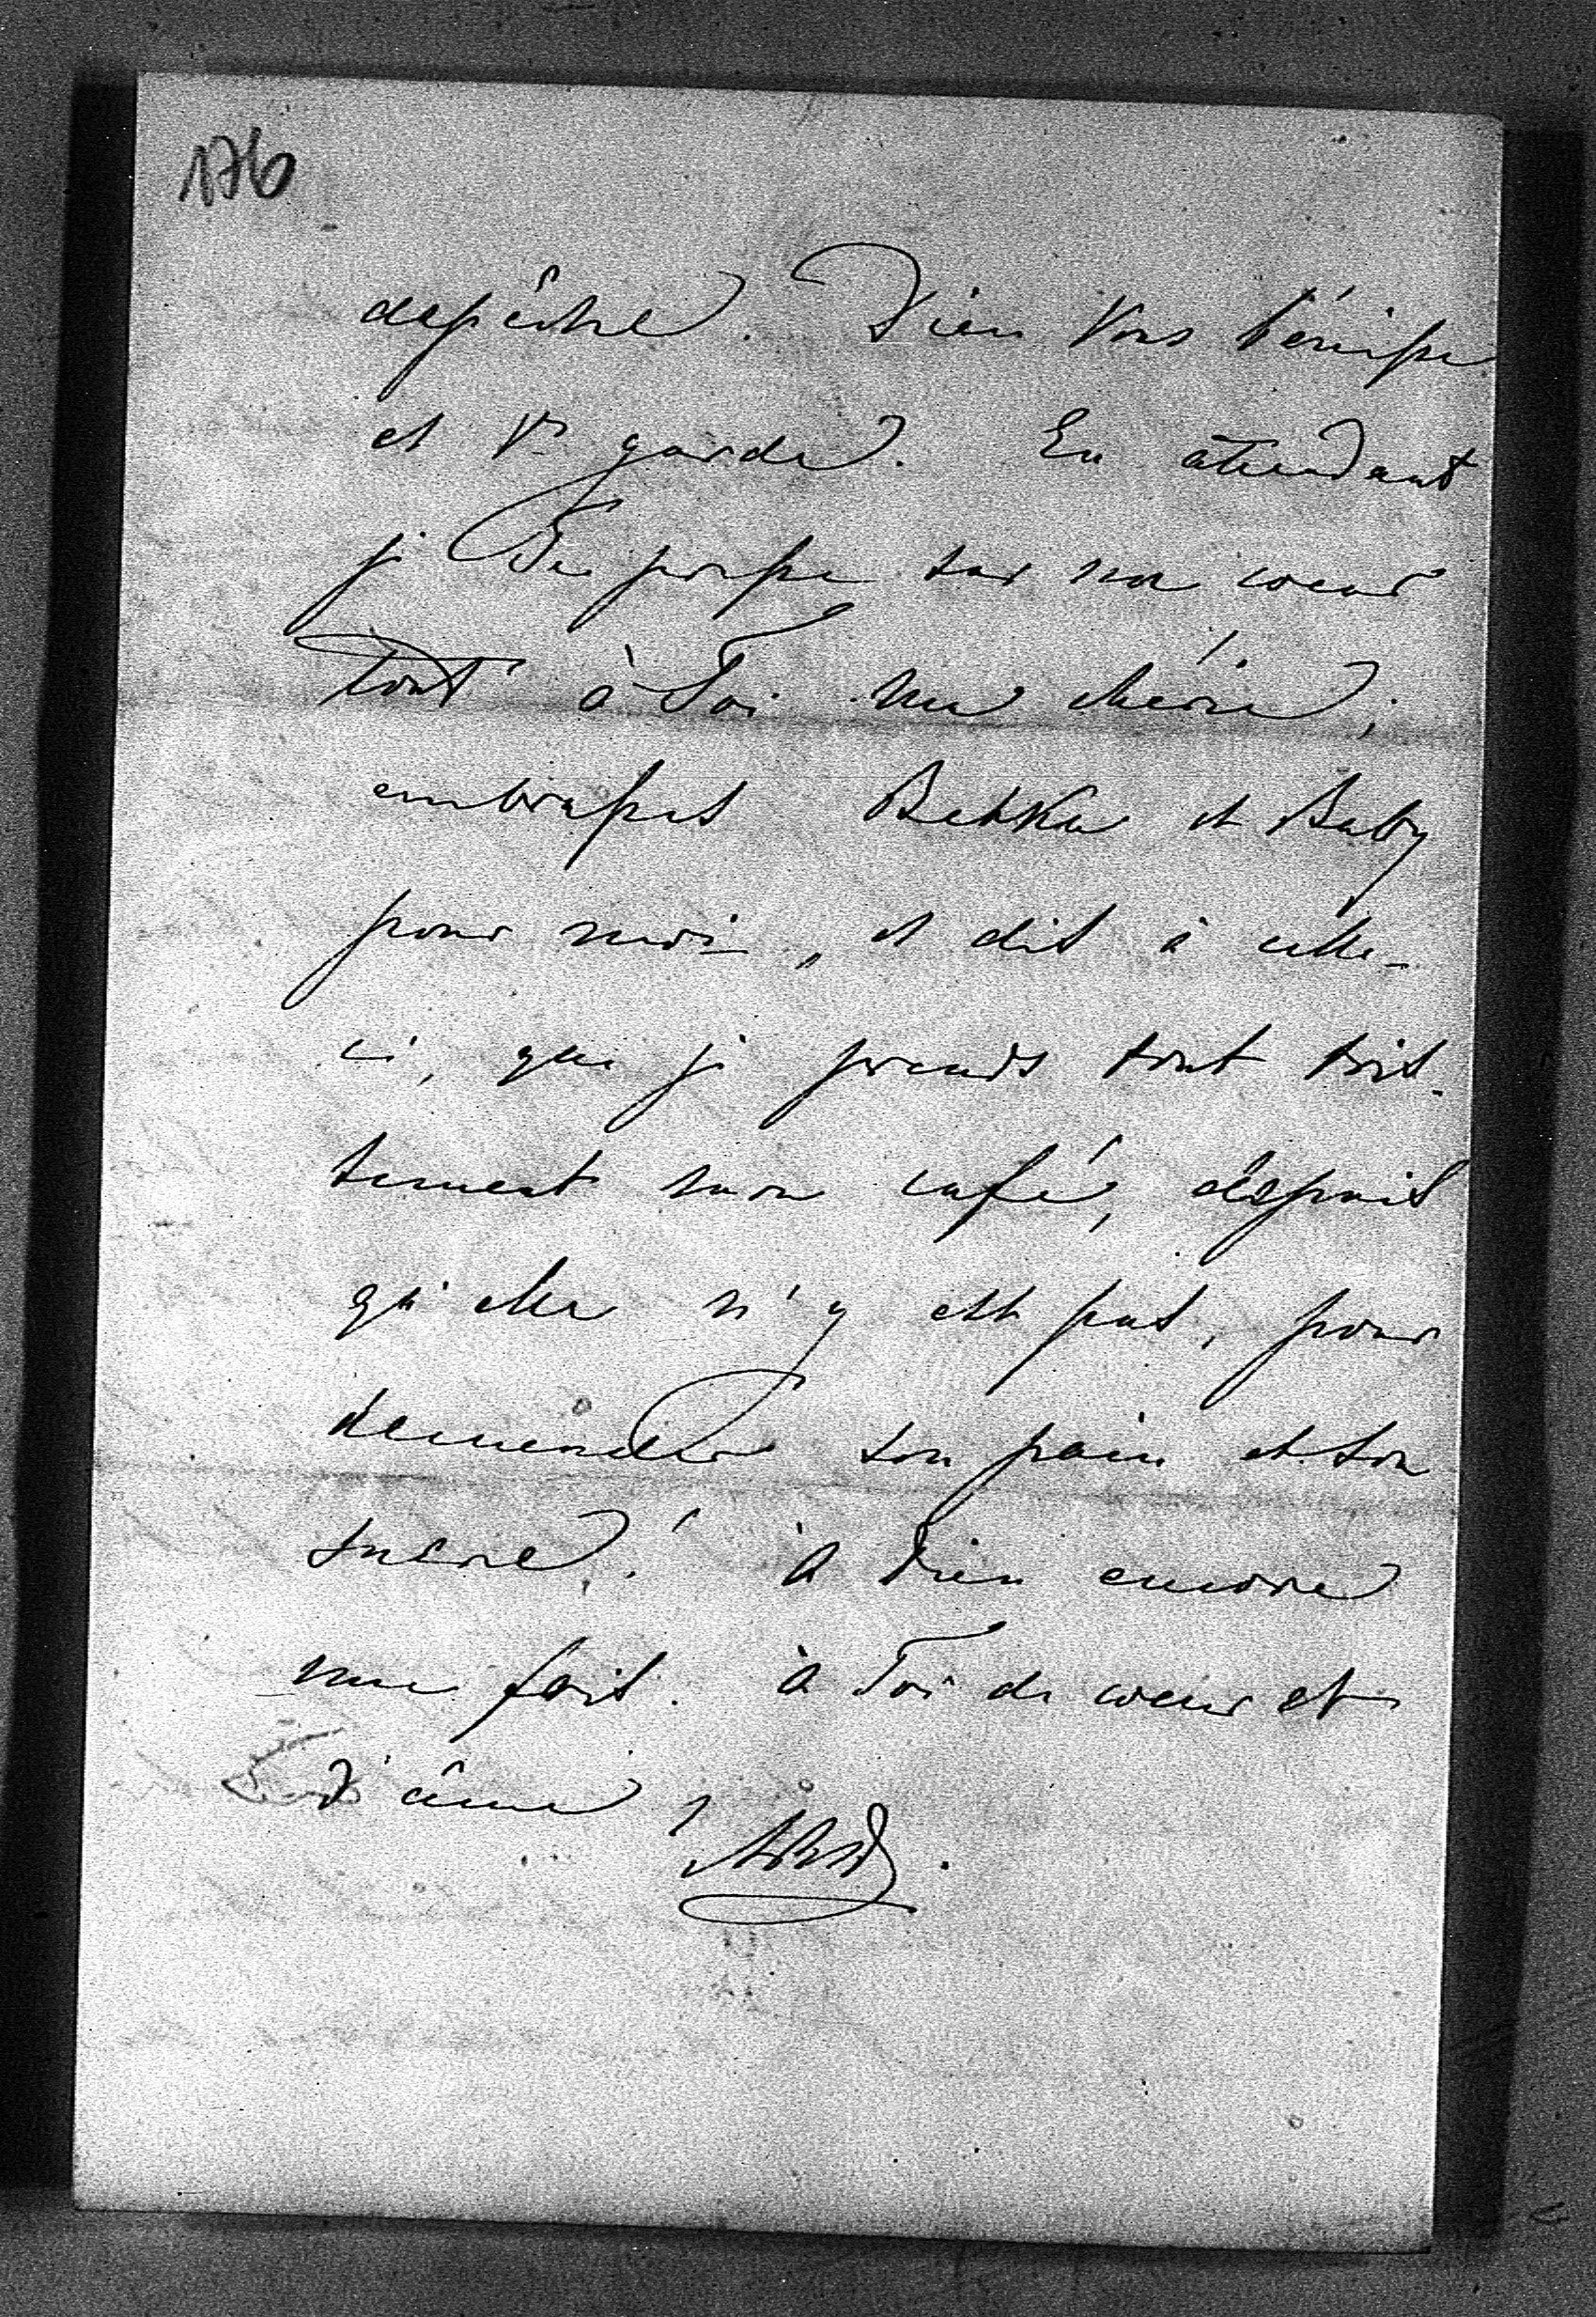 176
depêche. Dieu Vous bénisse
et Vs garde. En attendant
je Te presse sur mon coeur
tout à Toi ma chérie;
embrasses Bebka et Baby
pour moi, et dis à celle-
ci, que je prends tout tris-
tement mon café, depuis
qu'elle n'y est pas, pour
demender son pain et son
sucre! à Dieu encore
une fois. à Toi de coeur et
d'âme